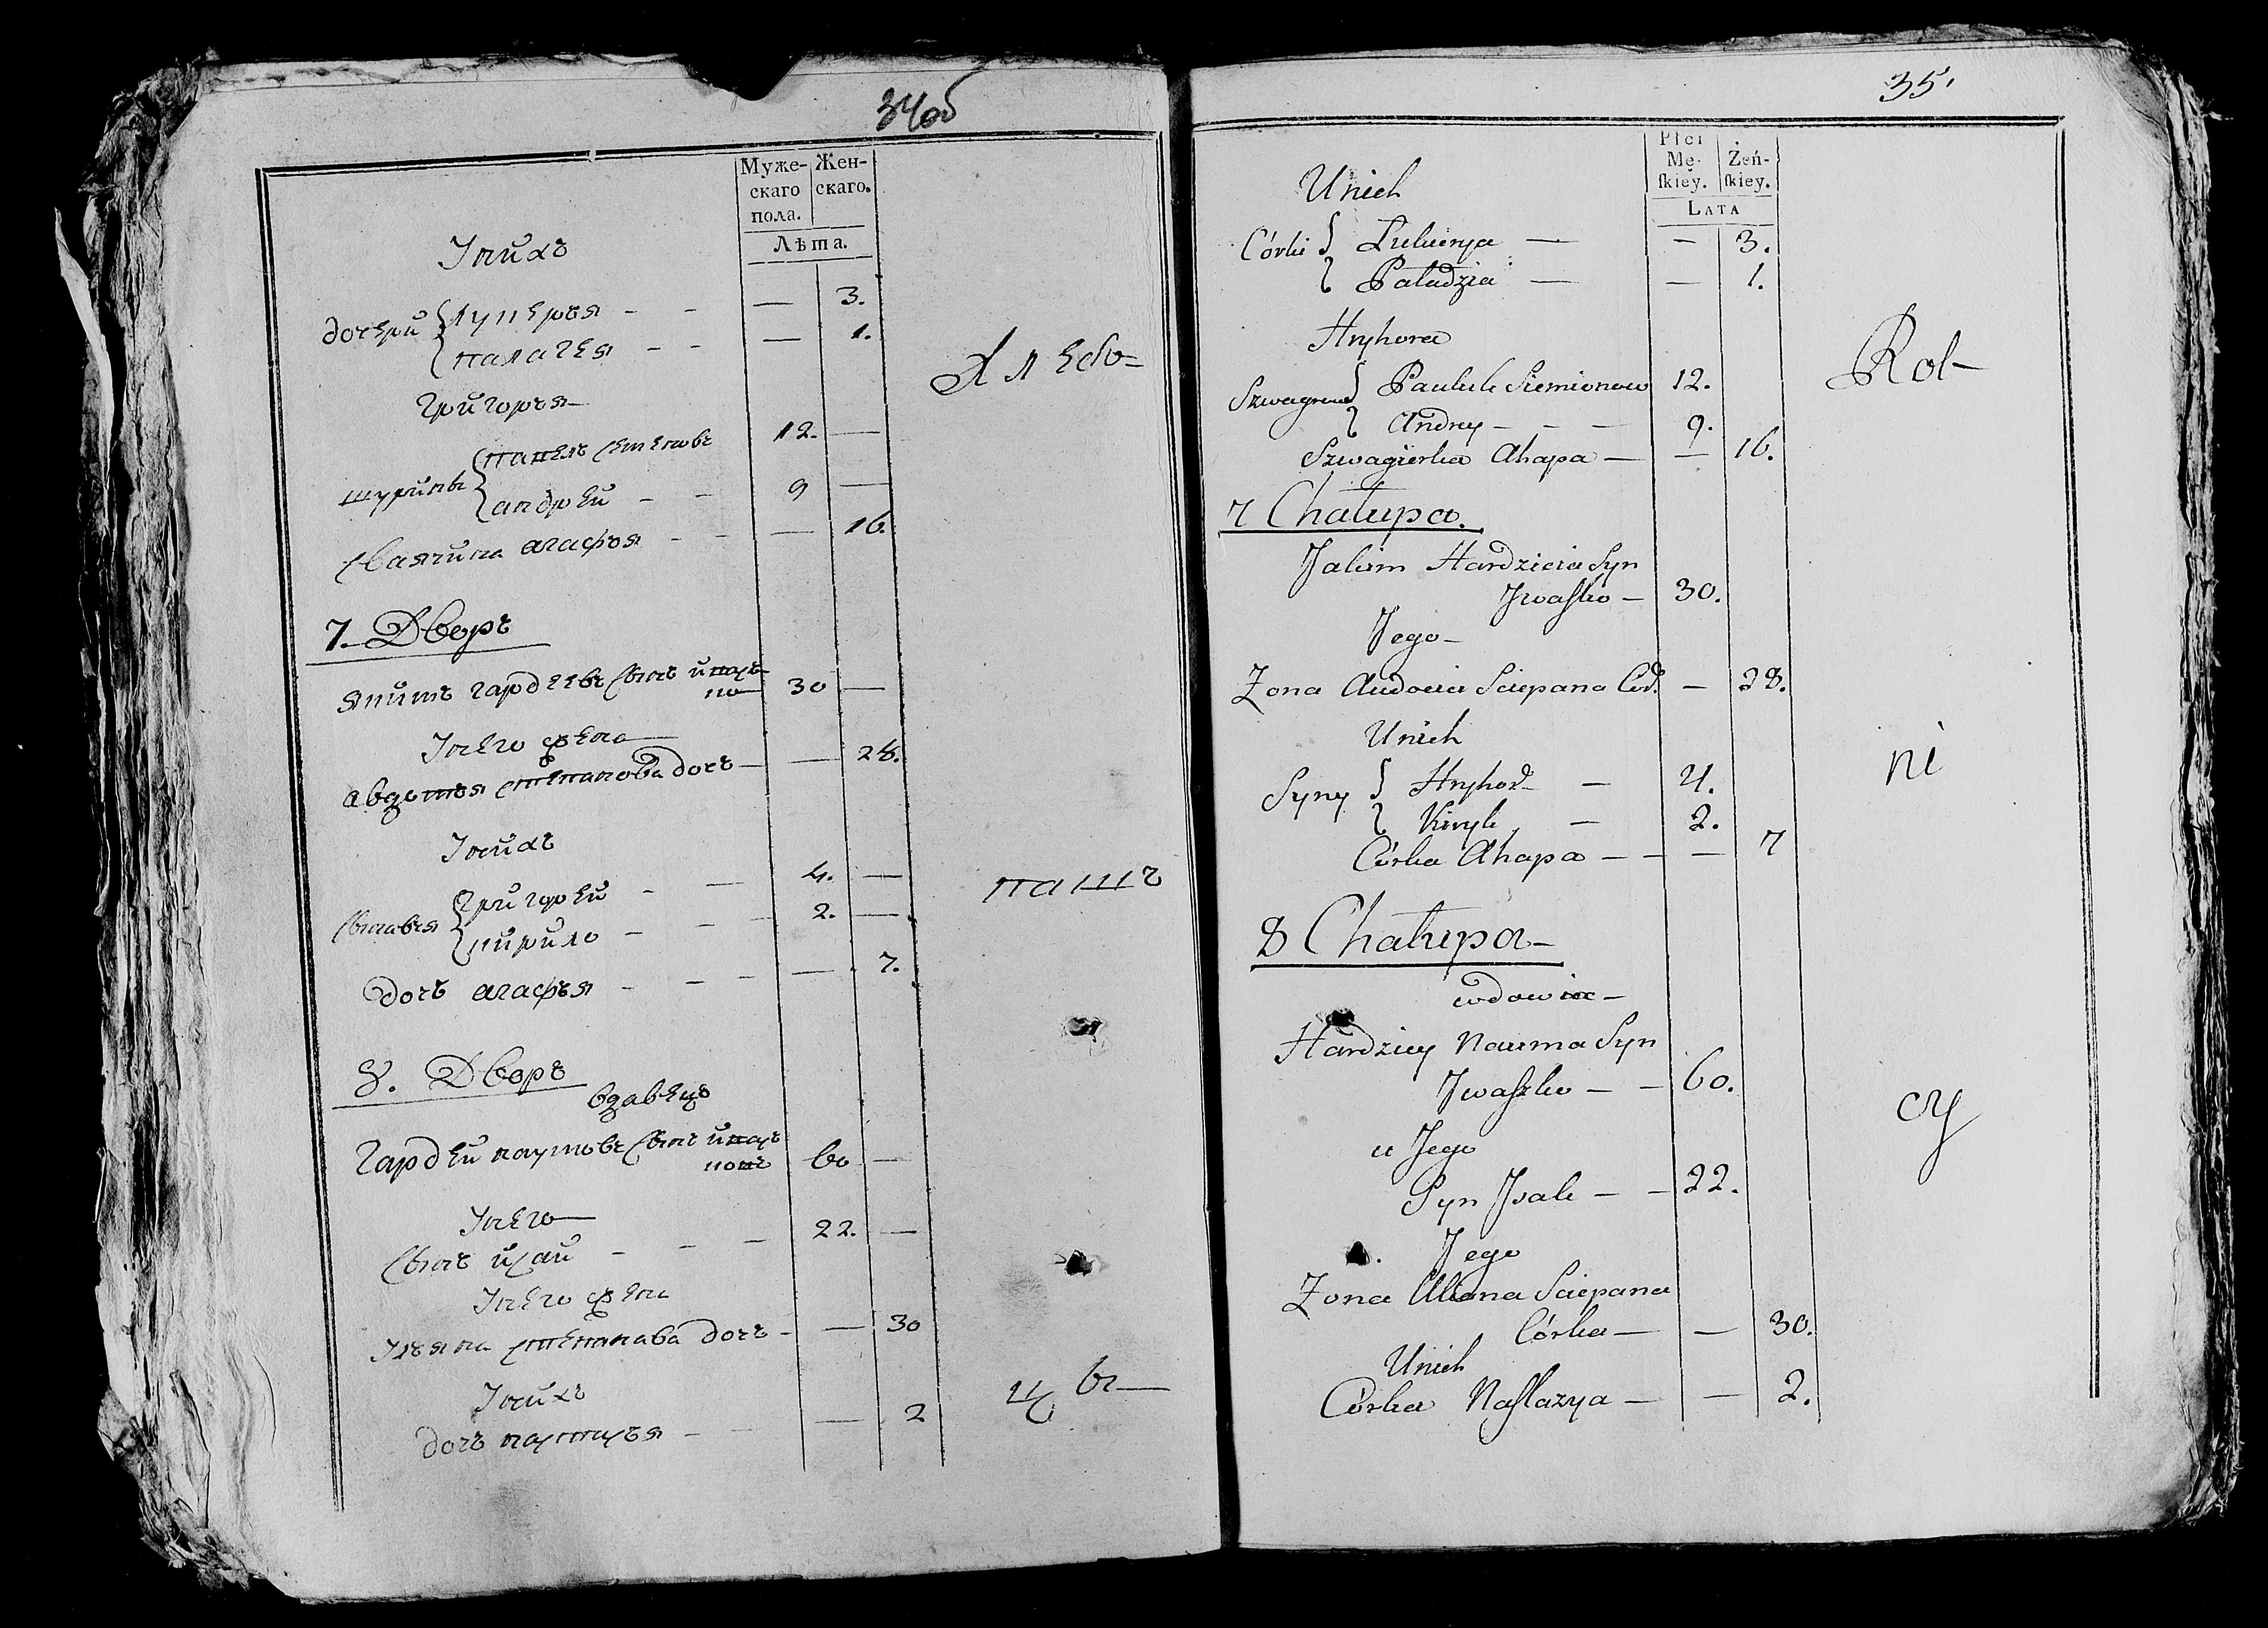 34об
Муже- Жен-
скаго скаго.
пола.
Лѣта.
Унихъ
дочери { Лукерья - - — 3.
{ палагея - - — 1.
Григорья —
шурины { павелъ семеновъ 12. —
{ андрей - - 9 —
свячина агафья - - — 16.
7. Дворъ
якимъ гардеевъ сынъ ивац-
ко 30 —
Унего жена —
авдотья степанова дочь — — 28.
Унихъ
сыновья { григорей - — 4. —
{ кирило - - — 2. —
дочь агафья - - - — 7.
8. Дворъ
вдавецъ
гардей наумовъ сынъ
60 —
Унего —
сынъ исай - - - 22. —
Унего жена
Ульяна степанава дочь - — 30
Унихъ
дочь настасья - - — 2
Хлебо-
паш
цы —
35.
Płci
Mę- Żeń-
ſkiey. ſkiey.
LATA
Unich
Córki { Łukierya — — 3.
{ Paładzia — — 1.
Hryhora
{ Pauluk Siemionow 12.
{ Andrey - - - 9.
Szwagierka Ahapa — — 16.
7 Chałupa.
Jakim Hardzieia Syn
Jwaſko — 30.
Jego —
Zona Audocia Sciepana Cór. — 28.
Unich
Syny { Hryhor — 4.
{ Kiryk — 2.
Córka Ahapa — — — 7
8 Chałupa —
wdowiec —
Hardziey Nauma Syn
Jwaſzko — — 60.
u Jego
Syn Jsak — — 22.
Jego
Zona Ullana Sciepana
Córka — — 30.
Unich
Córka Naſtazya — — 2.
Rol-
ni
cy